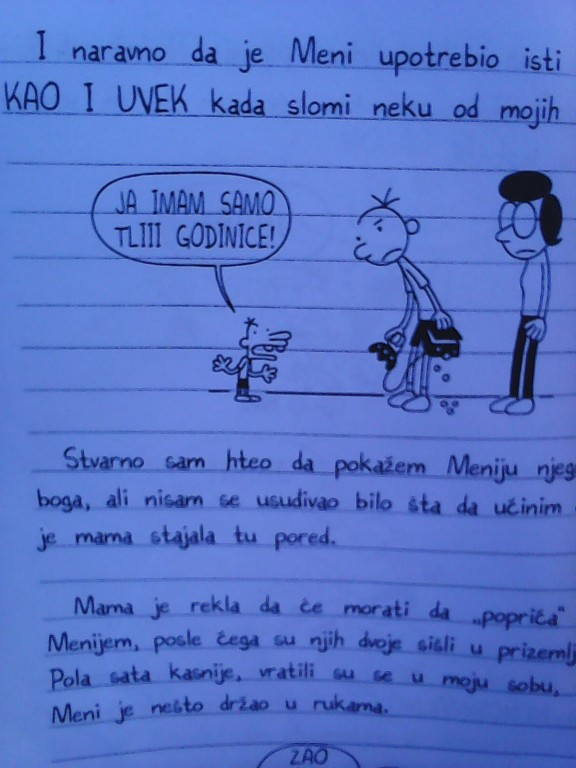 I naravno da je Meni upotrebio isti
KAO I UVEK kada slomi neku od mojih
JA IMAM SAMO
TLIII GODINICE!
Stvarno sam hteo da pokažem Meniju
boga, ali nisam se usuđivao bilo šta da učinim
je mama stajala tu pored.
Mama je rekla da će morati da „popriča“
Menijem, posle čega su njih dvoje sišli u
Pola sata kasnije, vratili su se u moju sobu,
Meni je nešto držao u rukama.
ZAO